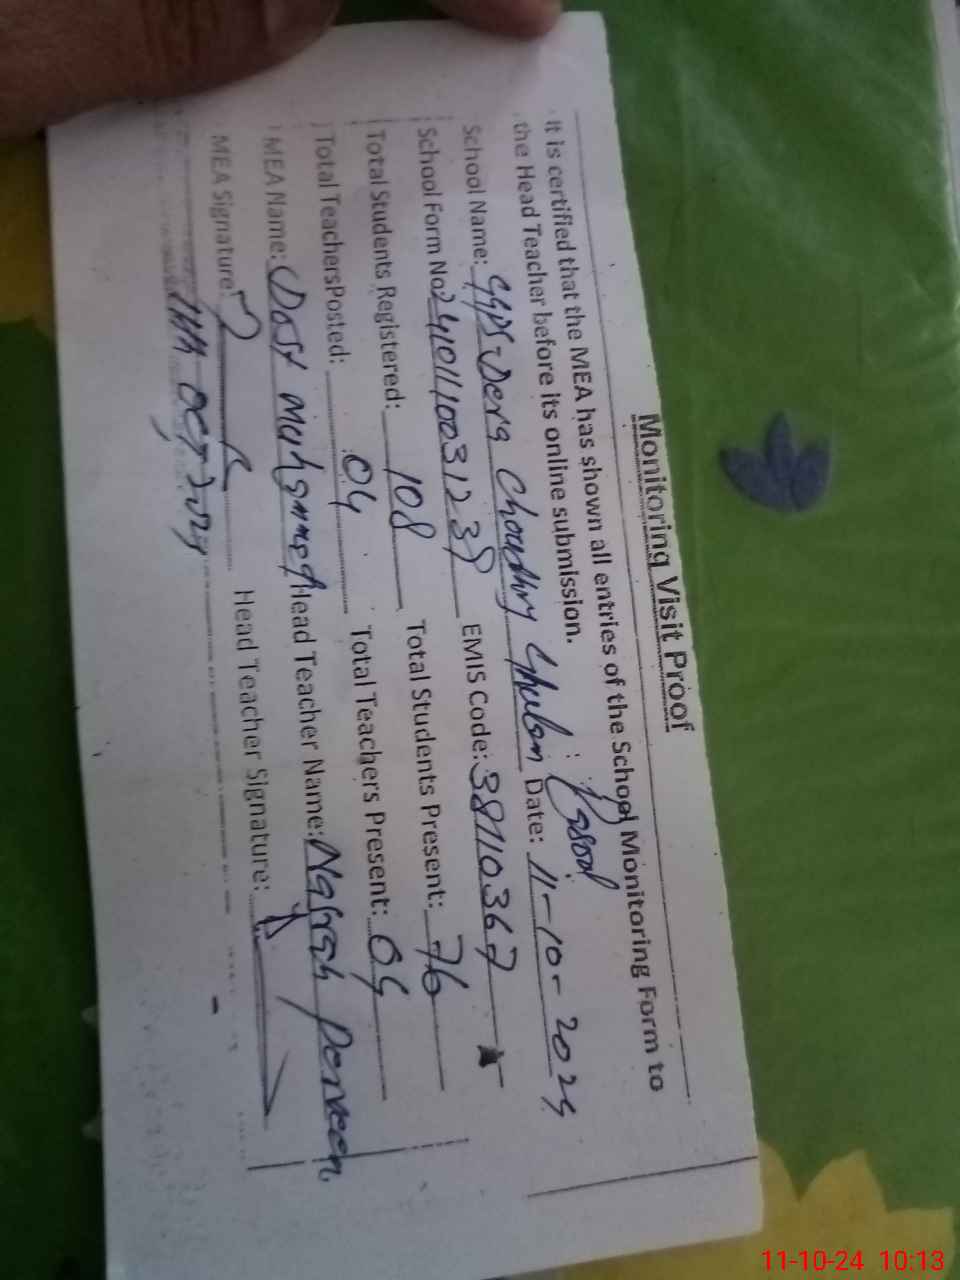 Monitoring Visit Proof
It is certified that the MEA has shown all entries of the School Monitoring Form to
the Head Teacher before its online submission.
School Name: GGPS-Dera Choudhry Ghulam Rasool Date: 11-10-2024
School Form No: 24101100312 EMIS Code: 38110367
Total Students Registered: 108 Total Students Present: 76
Total Teachers Posted: 04 Total Teachers Present: 04
MEA Name: Dost Muhammad Head Teacher Name: Parveen
MEA Signature: Head Teacher Signature:
11th OCT 2024
11-10-24 10:13